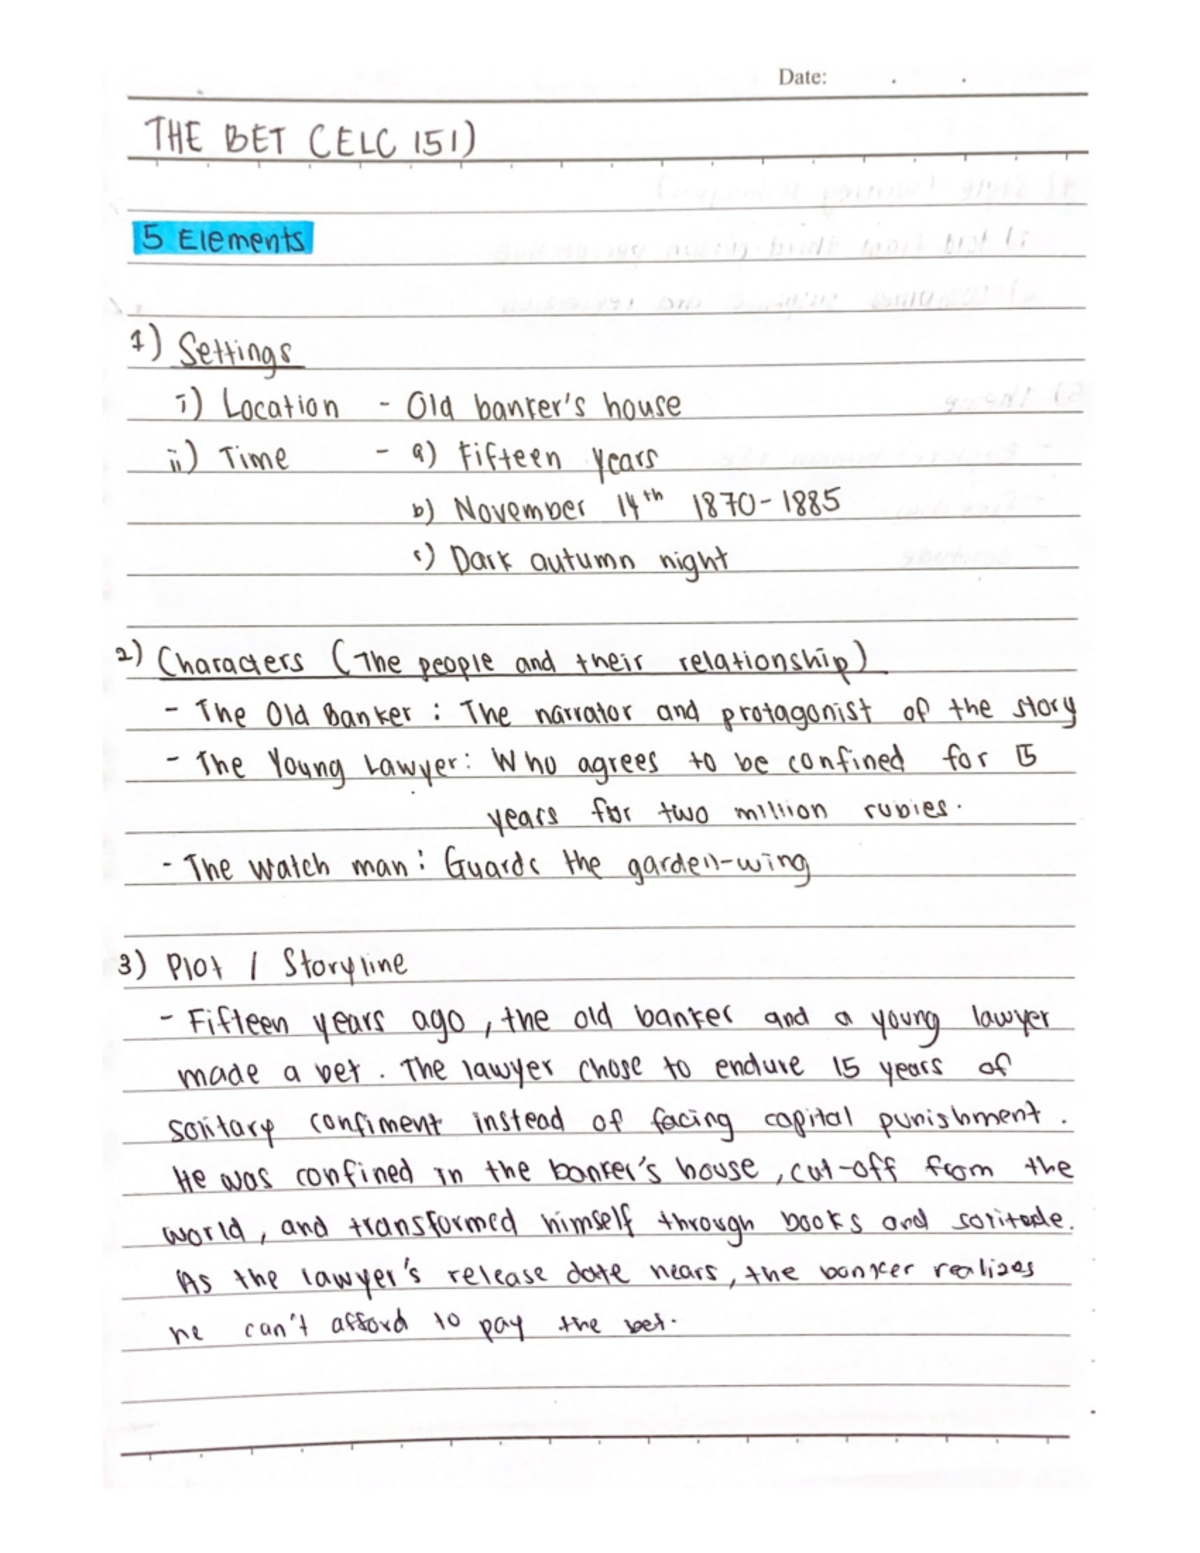 Date: . .
THE BET (ELC 151)
5 Elements
1) Settings
i) Location - Old banker's house
ii) Time - a) Fifteen years
b) November 14th 1870-1885
c) Dark autumn night
2) Characters (The people and their relationship)
- The Old Banker : The narrator and protagonist of the story
- The Young Lawyer: Who agrees to be confined for 15
years for two million rubies.
- The watch man : Guards the garden-wing
3) Plot / Storyline
- Fifteen years ago, the old banker and a young lawyer
made a bet. The lawyer chose to endure 15 years of
solitary confiment instead of facing capital punishment.
He was confined in the banker's house, cut-off from the
world, and transformed himself through books and solitude.
As the lawyer's release date nears, the banker realizes
he can't afford to pay the bet.